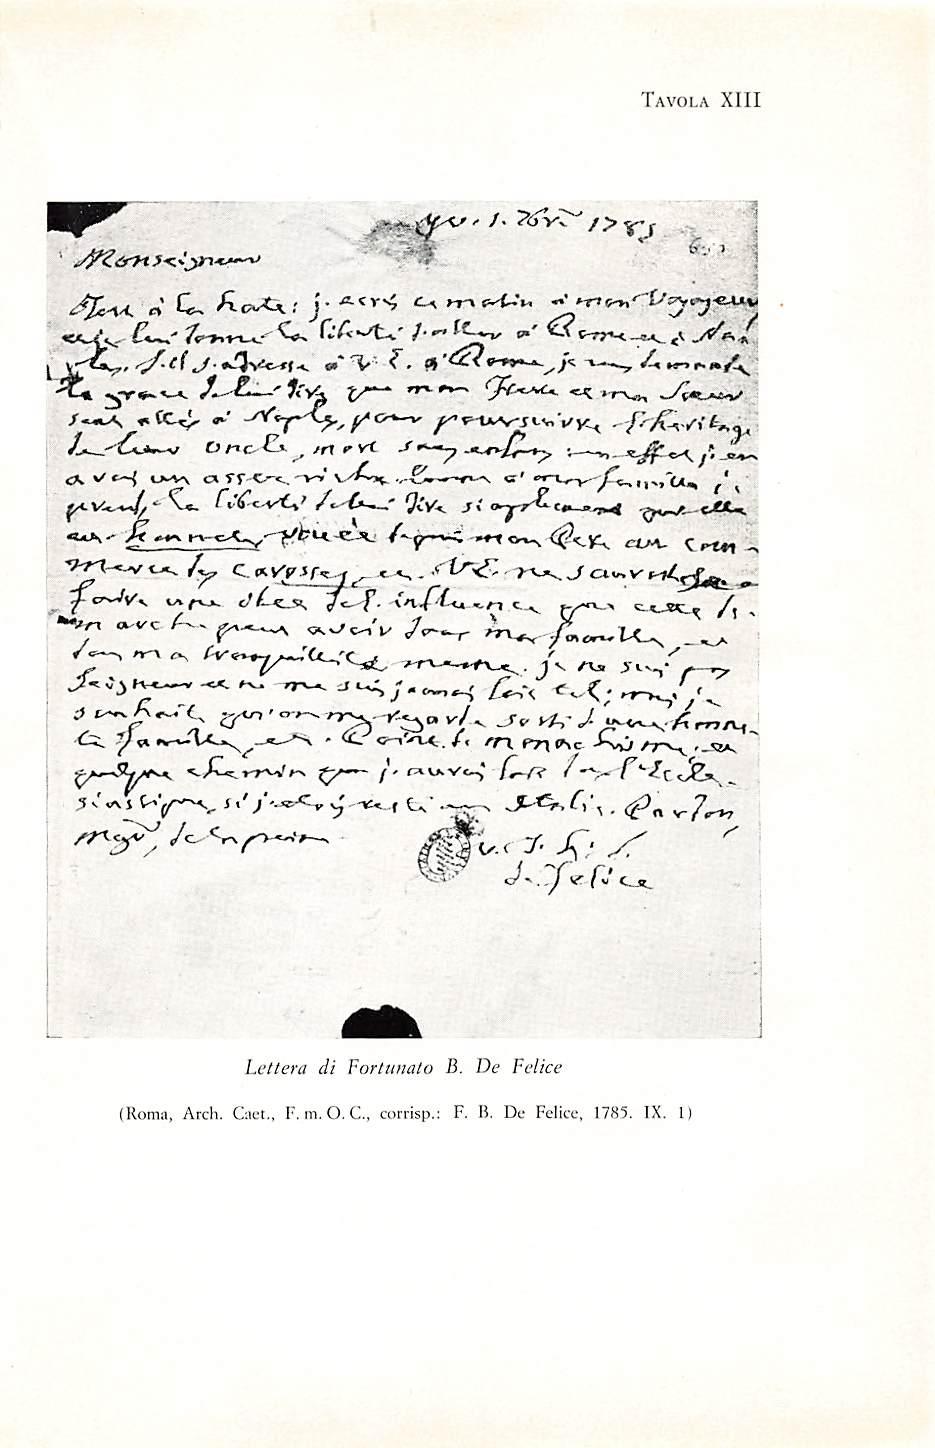 TAVOLA XIII
Yv. 1. 7bre 1785
Monseigneur
Tout à la hate: j'ecris ce matin à mon Voyageur
et je lui donne la liberté d'aller à Rome et à Na-
ples. S'il s'adresse à V. E. à Rome, je vous demande
la grace de lui dire que mon Frere et ma Soeur
sont allés à Naples, pour poursuivre l'heritage
de leur oncle, mort sans enfans: en effet j'en
avois un assez riche. Comme à ma famille je
prends la liberté de lui dire simplement qu'elle
est honnete, vouée depuis mon Pere au com-
merce des Carosses, et V. E. ne sauroit se
faire une idée de l'influence que cette de-
marche peut avoir dans ma famille, et
dans ma tranquillité meme. je ne suis pas
Seigneur et ne me suis jamais fait tel; mais je
souhaite qu'on me regarde sorti d'une honne-
te famille, et
quelque chemin que j'aurois fait dans l'Eccle-
siastique, si j'etois resté en Italie. Pardon,
Mgr, de la peine
v. t. h. s.
de Felice
Lettera di Fortunato B. De Felice
(Roma, Arch. Caet., F. m. O. C., corrisp.: F. B. De Felice, 1785. IX. 1)